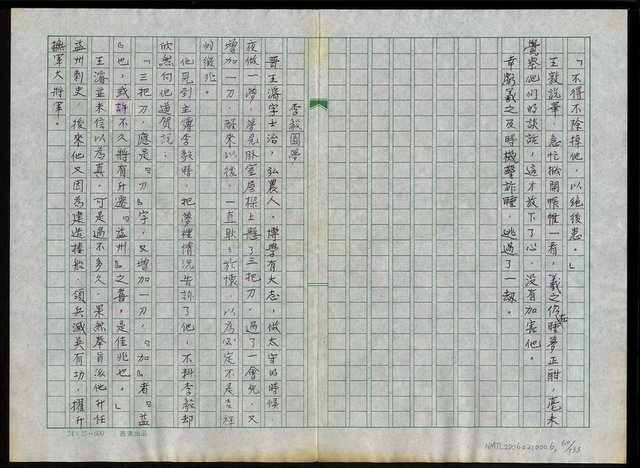 「不得不除掉他，以絕後患。」
王敦說畢，急忙掀開帳帷一看，羲之仍在睡夢正酣，毫未
覺察他們的談話，這才放下了心，沒有加害他。
幸虧羲之及時機警詐睡，逃過了一劫。
李毅圓夢
晉王濬字士治，弘農人，博學有大志，做太守的時候，
夜做一夢，夢見臥室屋樑上懸了三把刀，過了一會兒，又
增加一刀，醒來以後，一直耿耿於懷，以為必定不是吉祥
的徵兆。
他見到主簿李毅時，把夢裡情況告訴了他，不料李毅却
欣然向他道賀說：
「三把刀，應是『刀』字，又增加一刀，『加』者。『益
』也，或許不久將有升遷『益州』之喜，是佳兆也。」
王濬並未信以為真，可是過不多久，果然奉旨派他升任
益州刺史，後來他又因為建造樓船，領兵滅吳有功，擢升
撫軍大將軍。
24×25=600
NMTL20060210006
60/133